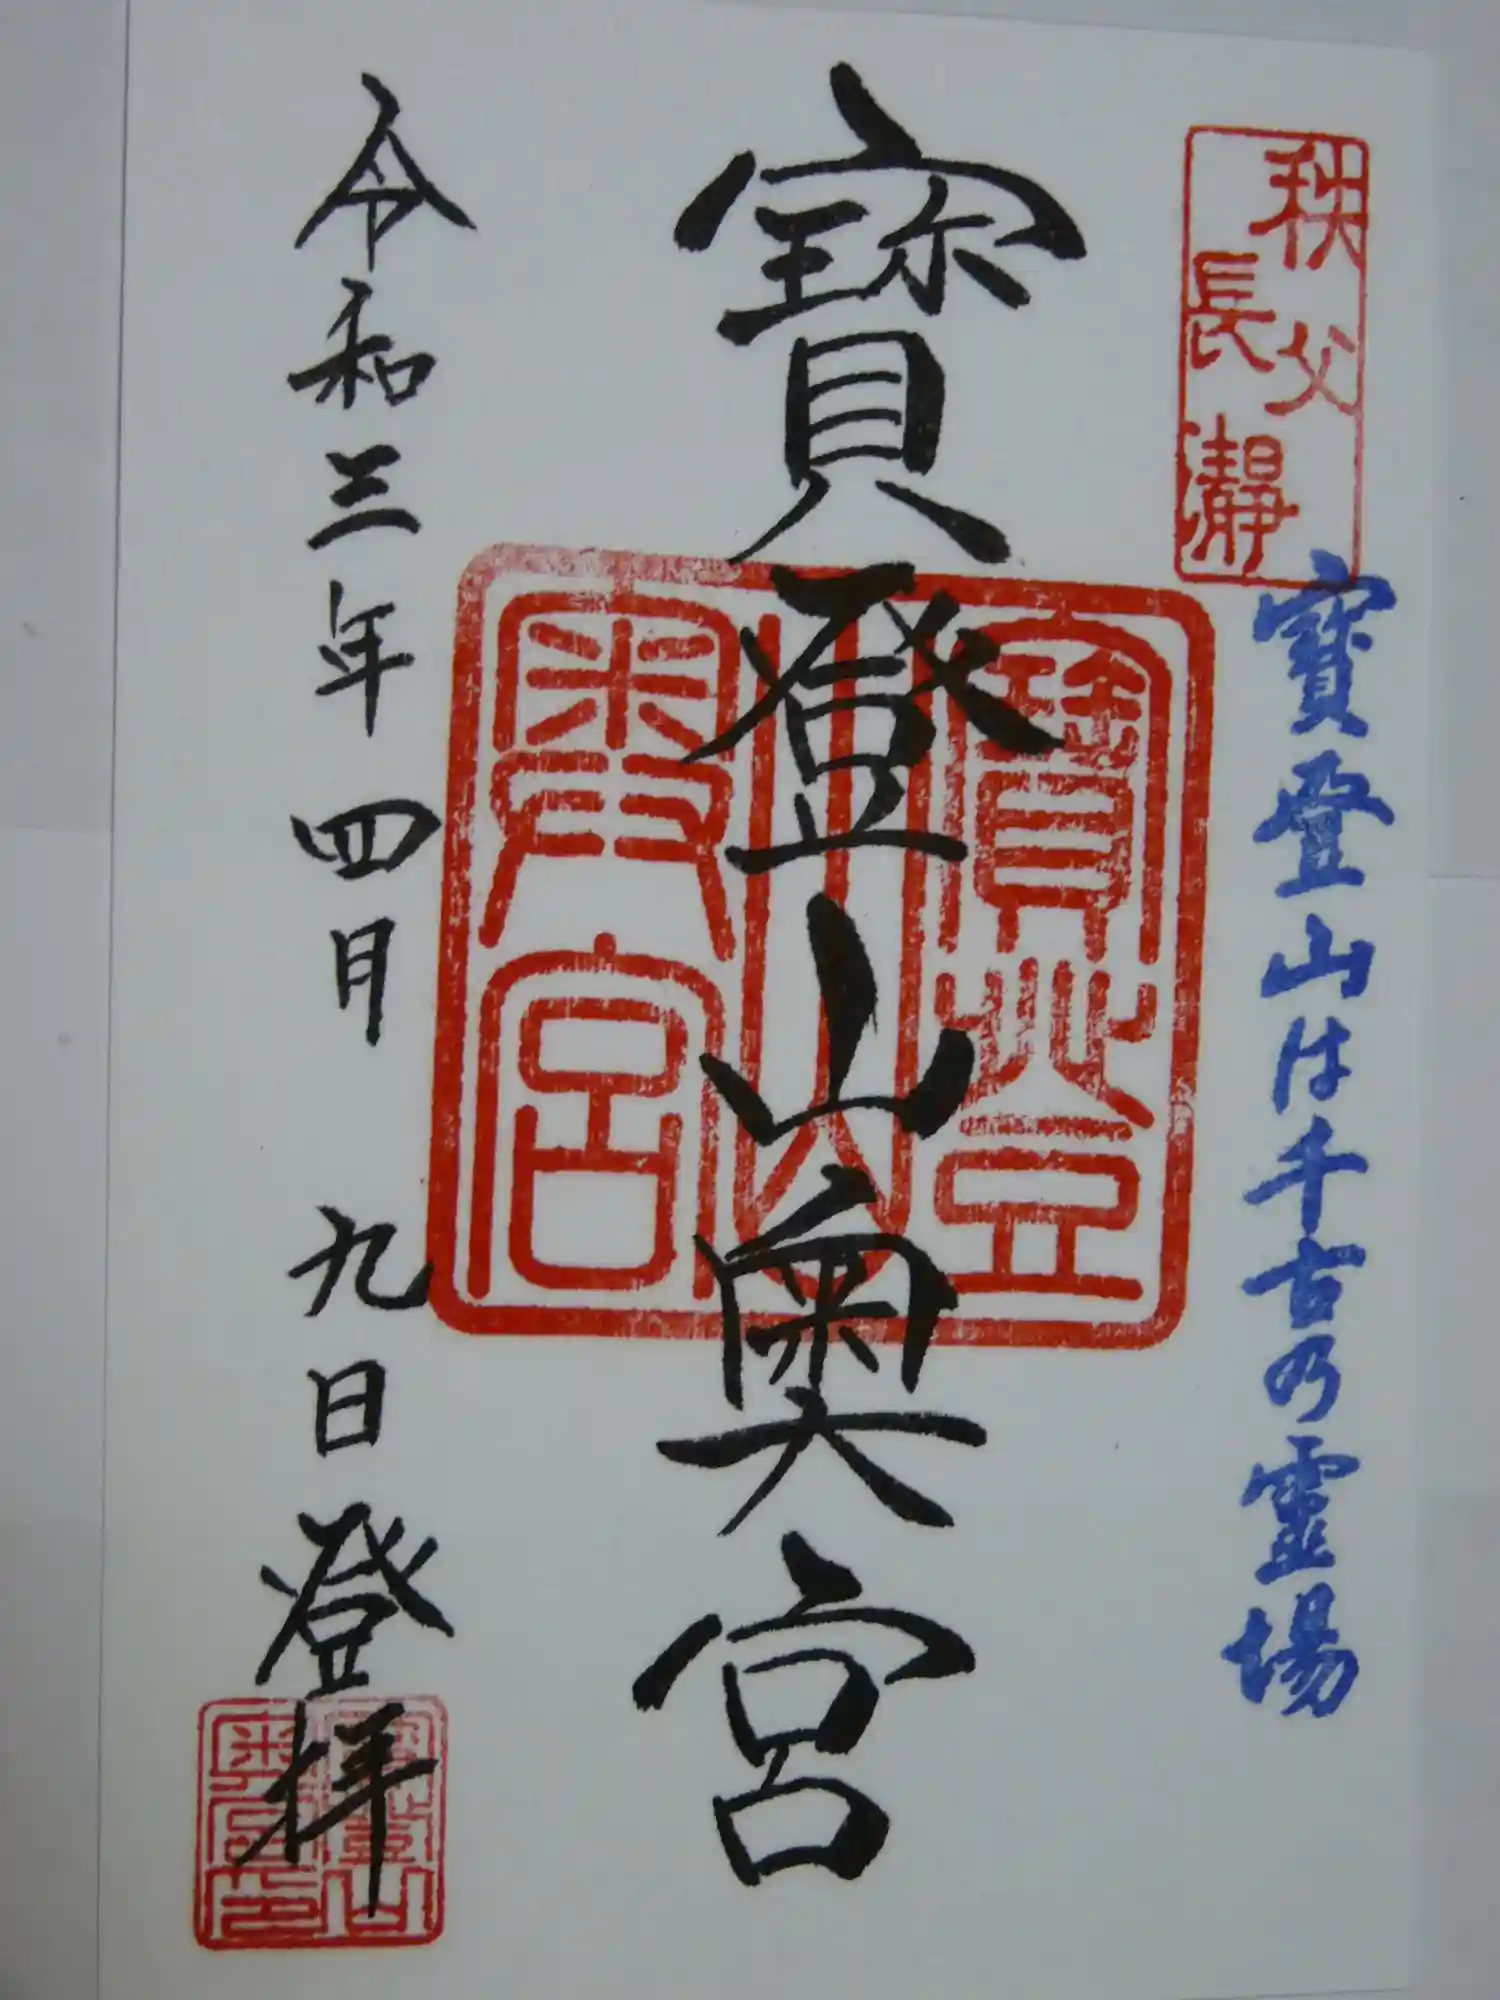 秩父
長瀞
寶登山は千古乃霊場
寶登山奥宮
寶登
山
奥宮
令和三年四月九日登拝
寶登山
奥宮印